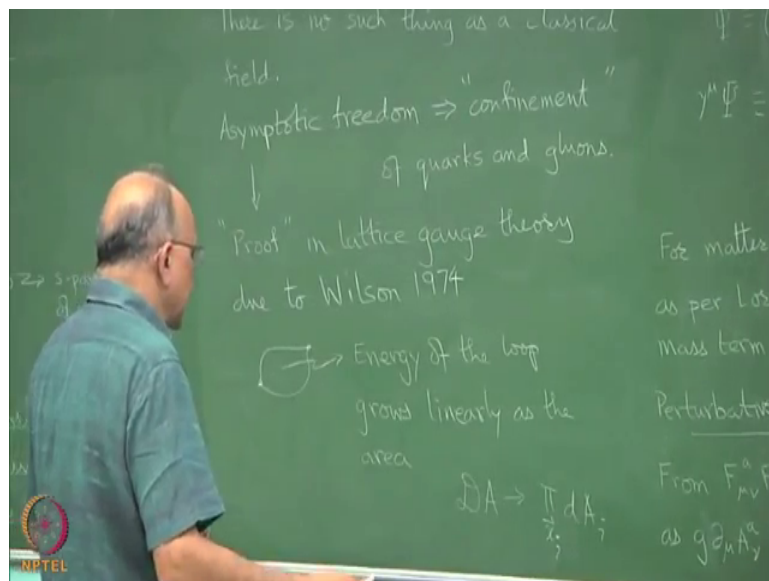 There is no such thing as a classical
field.
Asymptotic freedom ⇒ "confinement"
of quarks and gluons.
"Proof" in lattice gauge theory
due to Wilson 1974
Energy of the loop
grows linearly as the
area
DA → π dA
Ψ ≡ (
γ^μ Ψ ≡
For matter
as per Lor
mass term
Perturbativ
From F^a_{μν} F
as g∂_μ A^a_ν
NPTEL